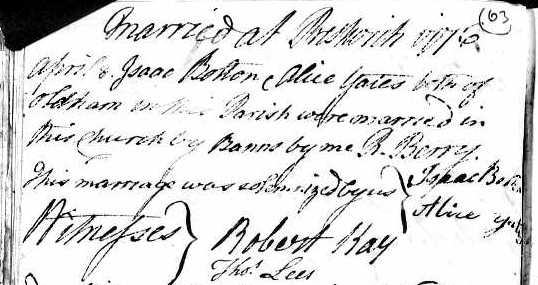 63
Married at Prestwich 1776
April 8 Isaac Botton & Alice Yates both of
Oldham in this Parish were married in
this Church by Banns by me R. Berry.
This marriage was solemnized by us } Isaac Bott
Alice Yat
Witnesses } Robert Kay
Thos. Lees